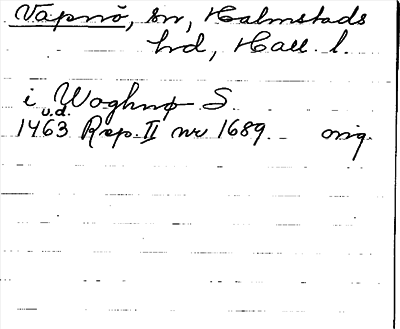 Vapnö, sn, Halmstads
hd, Hall. l.
i Woghnø S.
u.d.
1463 Rep. II nr 1689. orig.